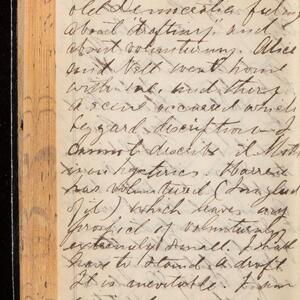 old Democratic
about "drafting" and
about volunteering. Alice
and Nell went home
with me, and there
a scene occurred which
beggard discription I
cannot describe it Mother
is in hysterics. Harris
has volunteered (
of it) which leaves my
prospect of volunteering
extremely small. I shall
have to stand a draft
It is inevitable.